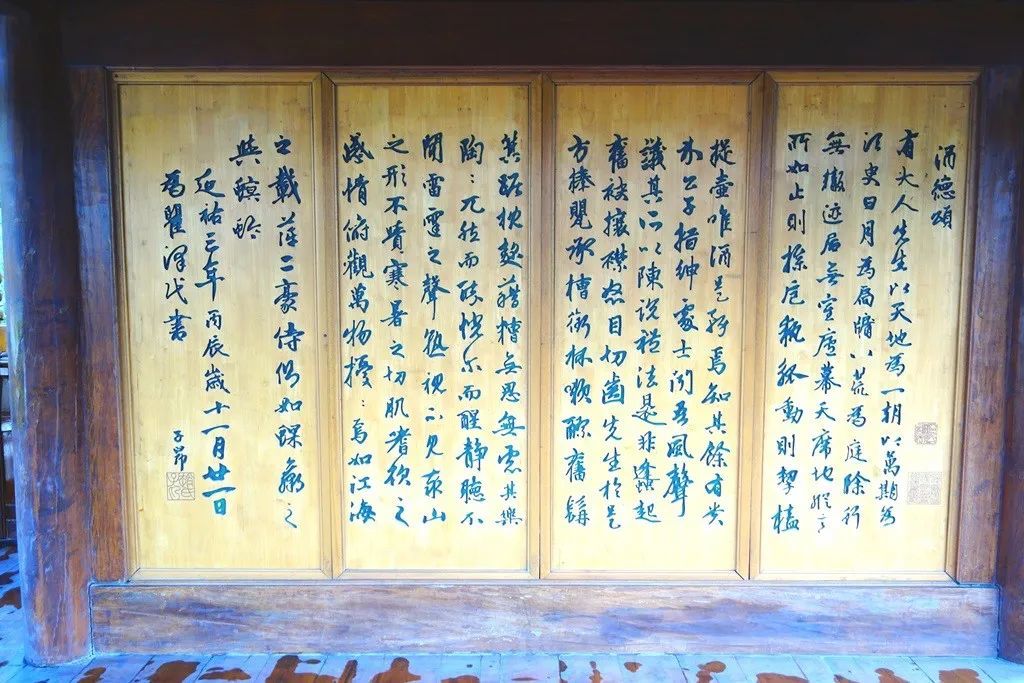 酒德頌
有大人先生以天地為一朝以萬期為
須臾日月為扃牖八荒為庭除行
無轍迹居無室廬幕天席地縱意
所如止則操卮執觚動則挈榼
提壺唯酒是務焉知其餘有貴
介公子搢紳處士聞吾風聲
議其所以陳說禮法是非蠭起
奮袂攘襟怒目切齒先生於是
方捧甖承槽銜杯漱醪奮髯
箕踞枕麴藉糟無思無慮其樂
陶〻兀然而醉怳爾而醒靜聽不
聞雷霆之聲孰視不見泰山
之形不覺寒暑之切肌嗜欲之
感情俯觀萬物擾〻焉如江海
之載萍二豪侍側如蜾蠃之
與螟蛉
延祐三年丙辰歲十一月廿一日
為瞿澤民書
子昂